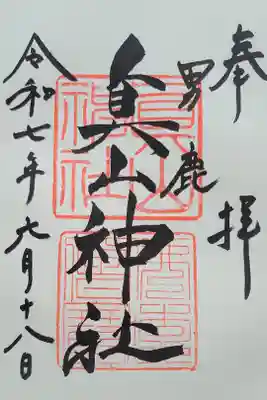 奉拝
男鹿
真山神社
令和七年六月十八日